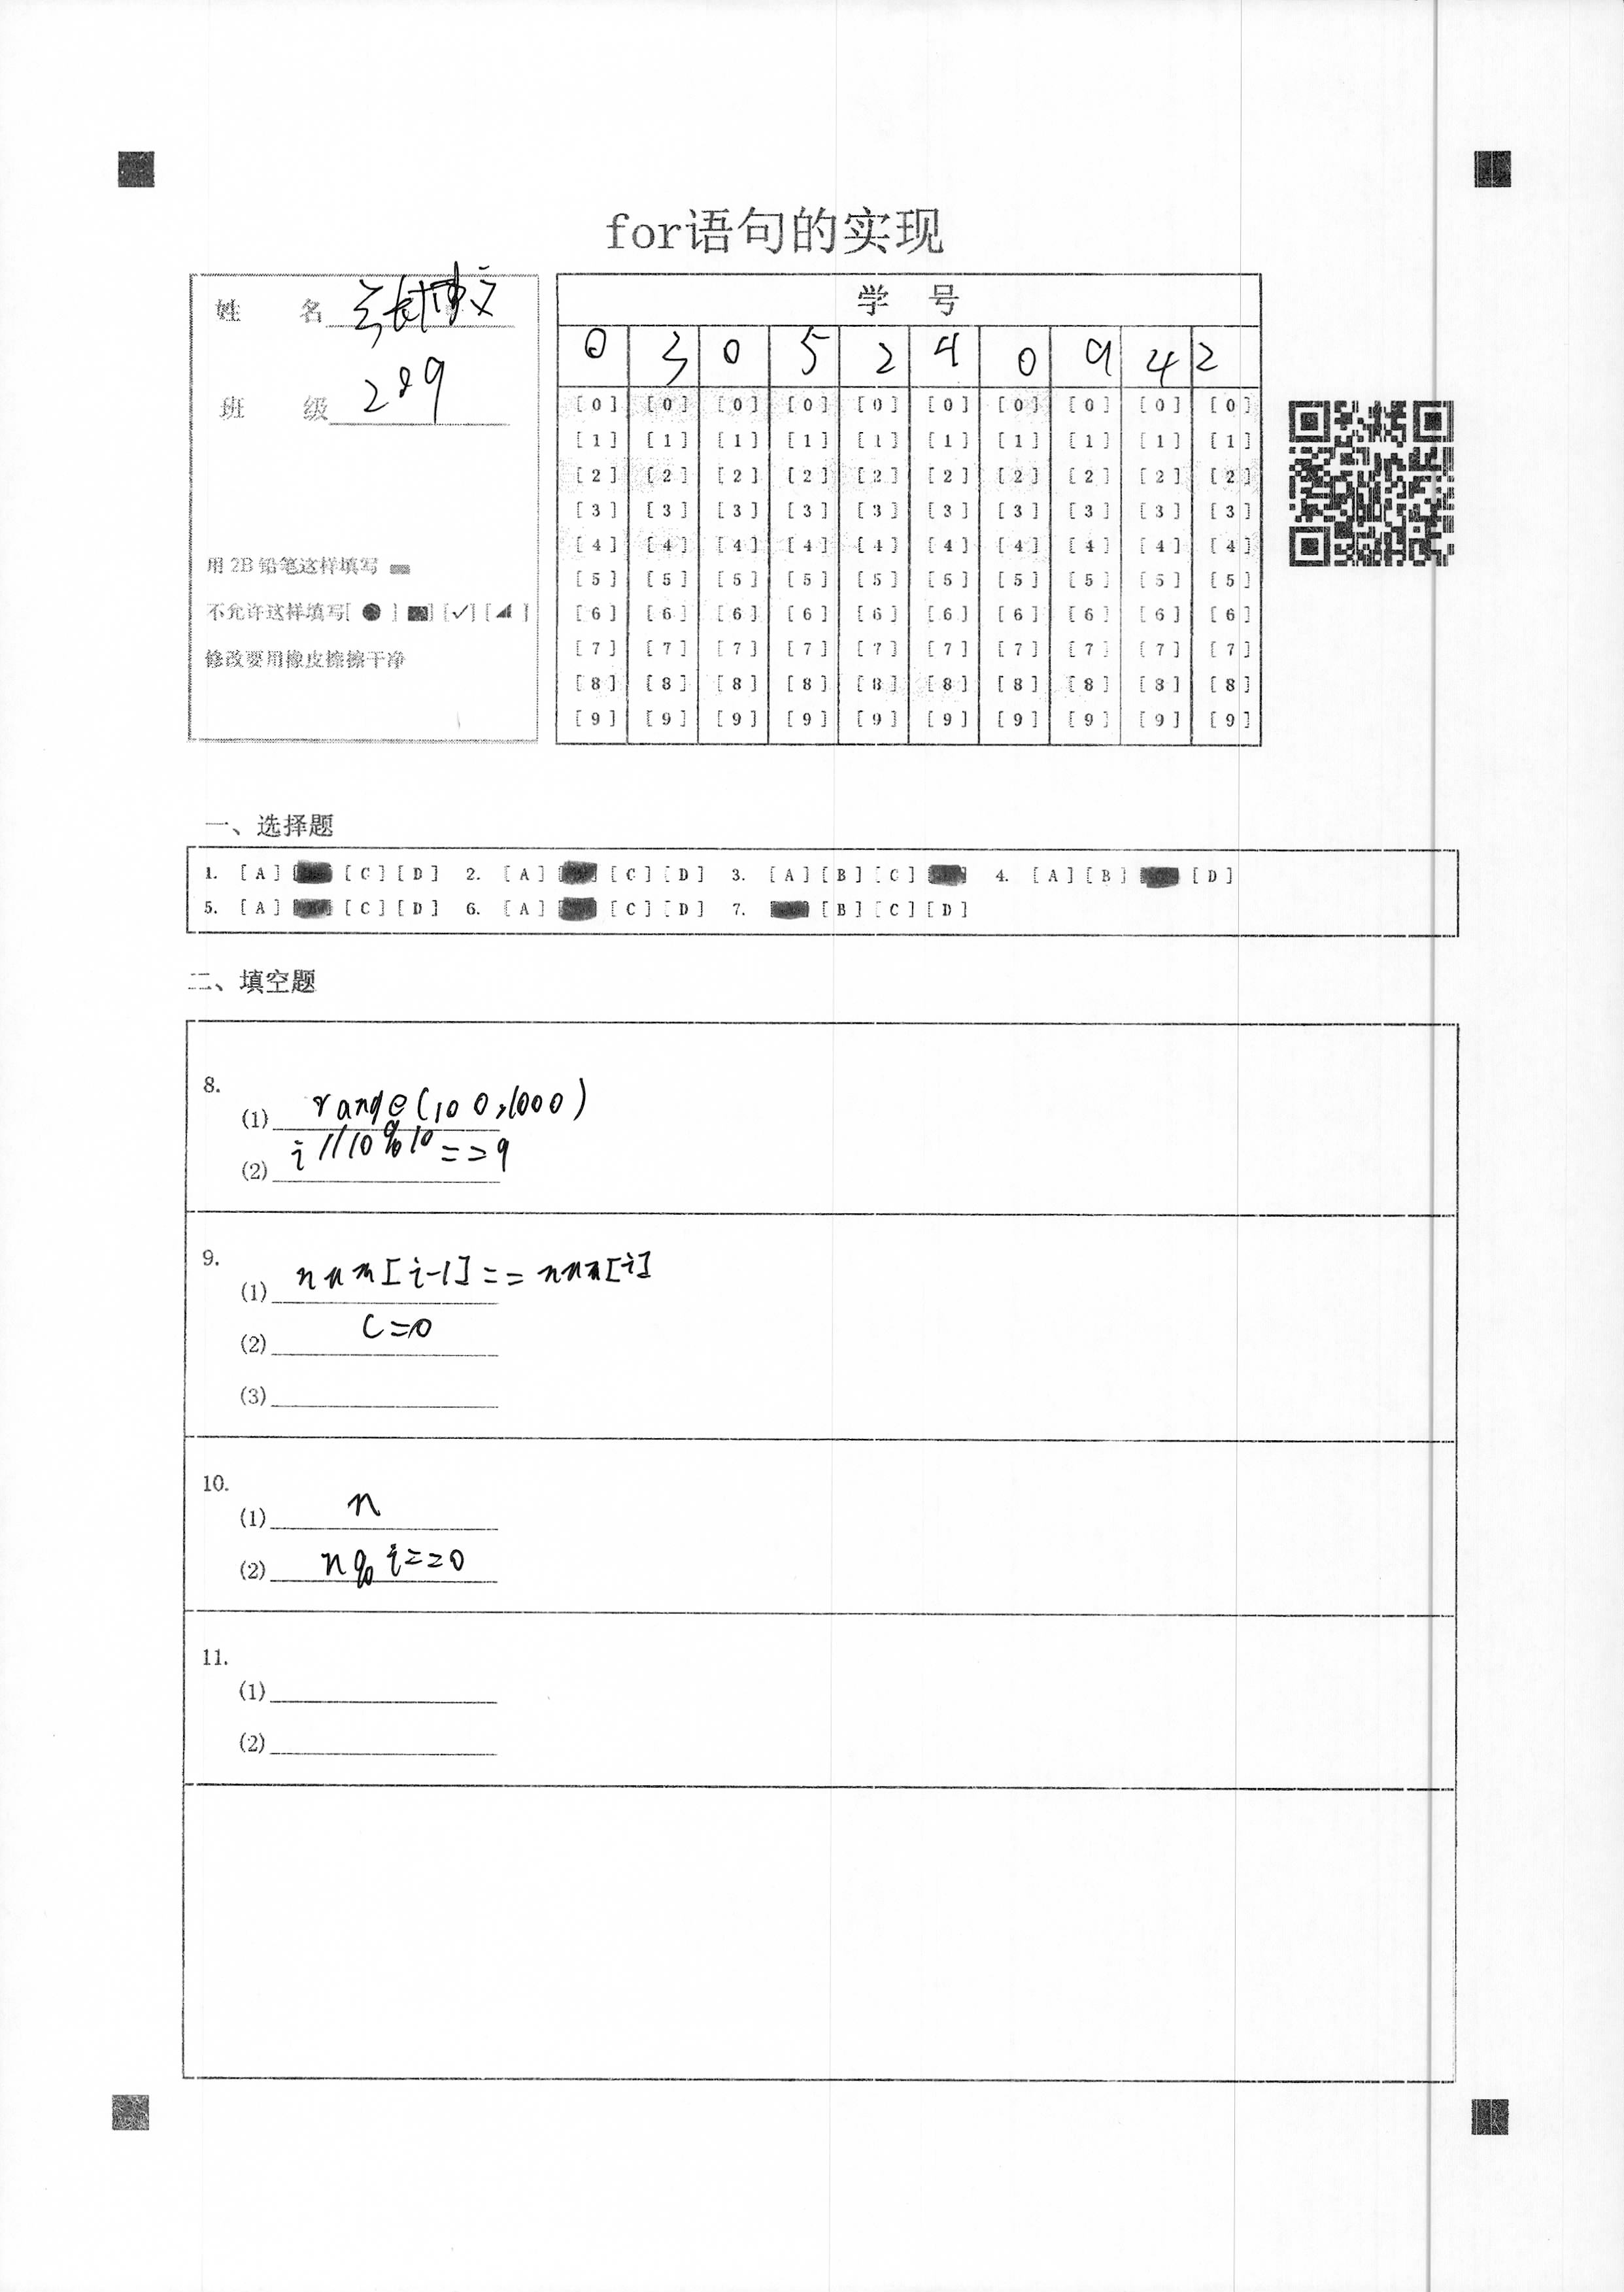 for语句的实现
姓 名 张博文
班 级 209
用 2B 铅笔这样填写
不允许这样填写[ ● ] [■] [✓] [◢ ]
修改要用橡皮擦擦干净
学 号
0 3 0 5 2 4 0 9 4 2
[0] [0] [0] [0] [0] [0] [0] [0] [0] [0]
[1] [1] [1] [1] [1] [1] [1] [1] [1] [1]
[2] [2] [2] [2] [2] [2] [2] [2] [2] [2]
[3] [3] [3] [3] [3] [3] [3] [3] [3] [3]
[4] [4] [4] [4] [4] [4] [4] [4] [4] [4]
[5] [5] [5] [5] [5] [5] [5] [5] [5] [5]
[6] [6] [6] [6] [6] [6] [6] [6] [6] [6]
[7] [7] [7] [7] [7] [7] [7] [7] [7] [7]
[8] [8] [8] [8] [8] [8] [8] [8] [8] [8]
[9] [9] [9] [9] [9] [9] [9] [9] [9] [9]
一、选择题
1. [A] [C] [D] 2. [A] [C] [D] 3. [A] [B] [C] 4. [A] [B] [D]
5. [A] [C] [D] 6. [A] [C] [D] 7. [B] [C] [D]
二、填空题
8.
(1) range(100,1000)
(2) i//10%10==9
9.
(1) num[i-1]==num[i]
(2) c=0
(3)
10.
(1) n
(2) n%i==0
11.
(1)
(2)